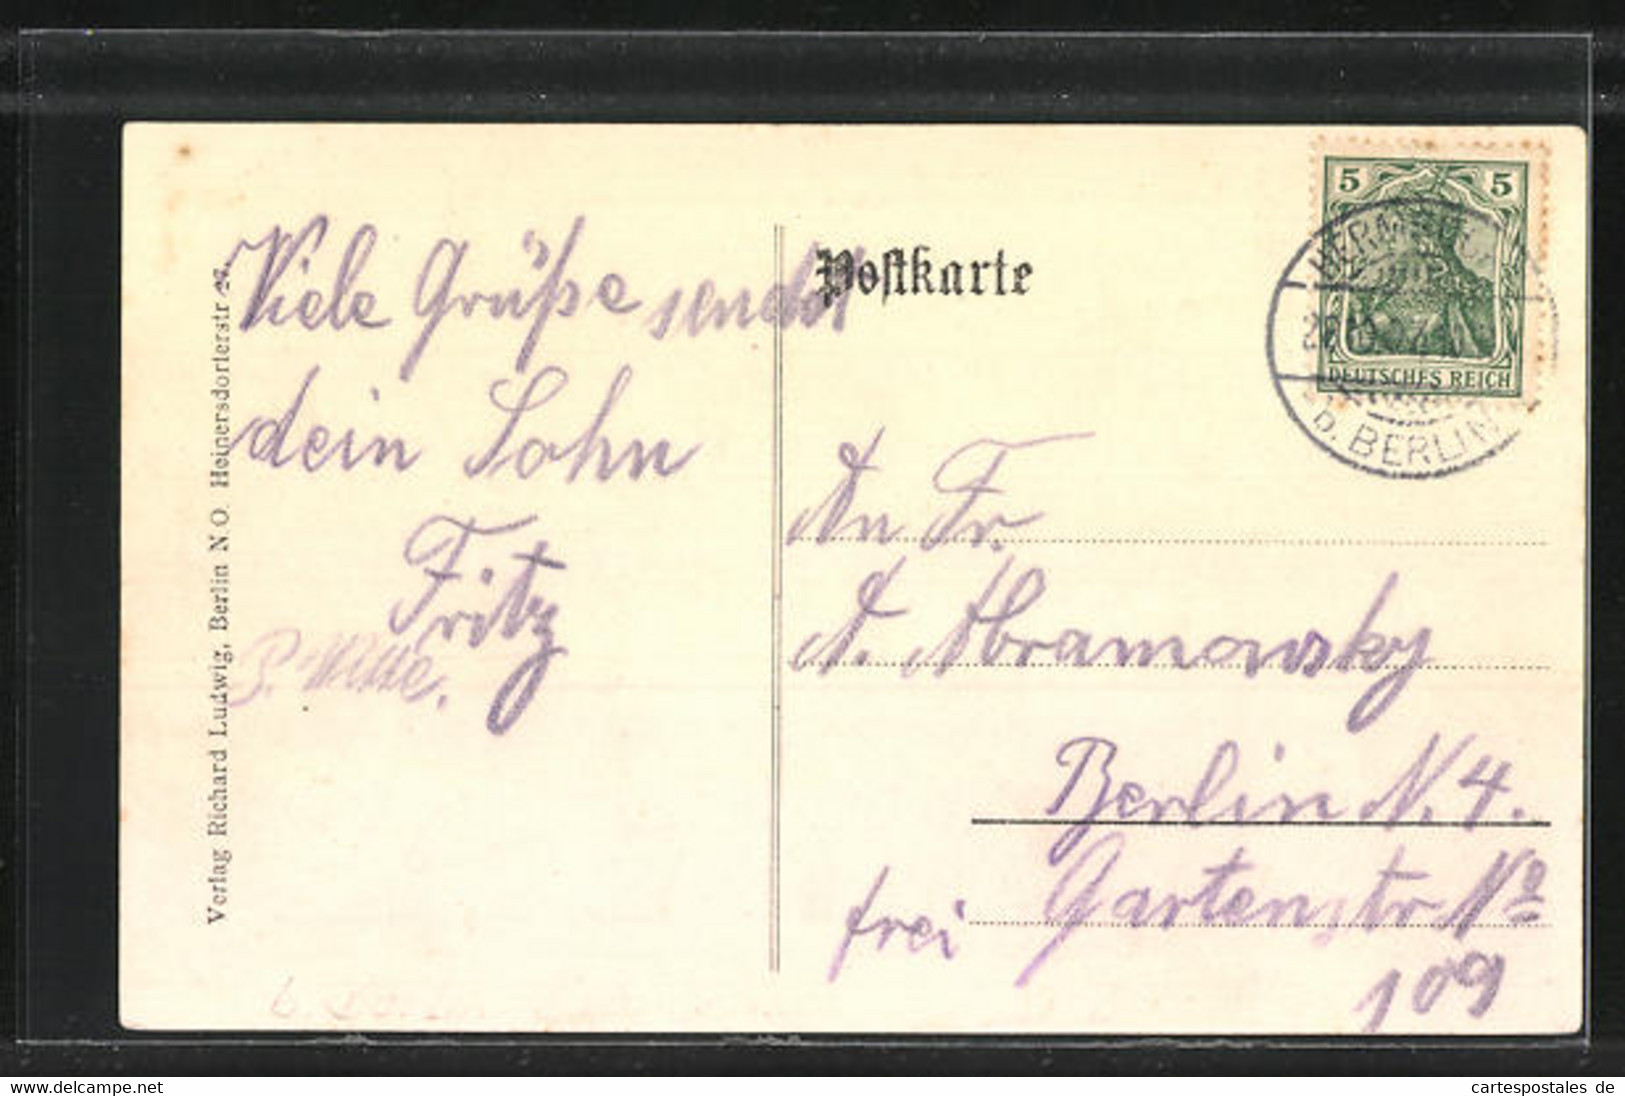 Viele Grüße sendet
dein Sohn
Fritz
P. Wille.
Verlag Richard Ludwig, Berlin N.O. Heinersdorferstr
Postkarte
5 5
DEUTSCHES REICH
b. BERLIN
An Fr.
A. Abramowsky
Berlin N. 4.
Gartenstr No
109
frei
delcampe.net
cartespostales de